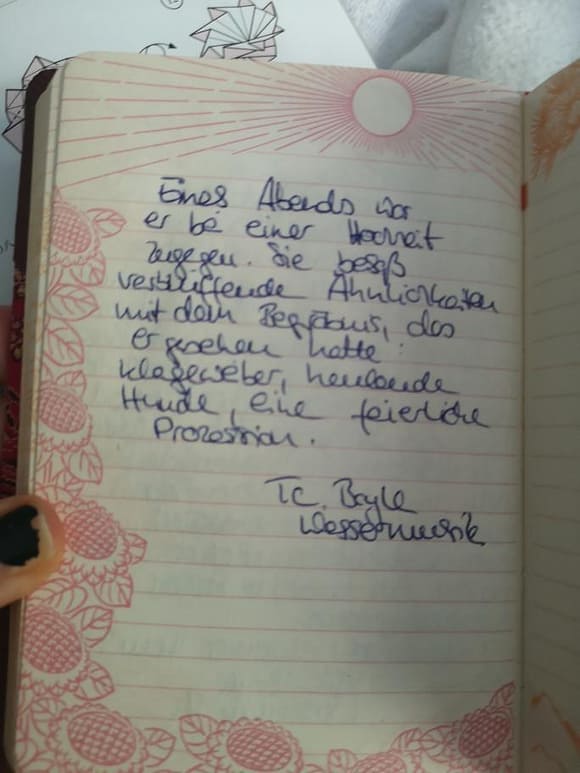 Eines Abends war
er bei einer Hochzeit
zugegen. Sie besaß
verblüffende Ähnlichkeiten
mit dem Begräbnis, das
er gesehen hatte:
Klageweiber, heulende
Hunde, eine feierliche
Prozession.
T.C. Boyle
Wassermusik